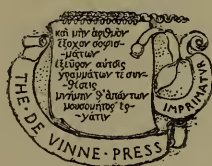 καὶ μὴν ἀριθμὸν
ἔξοχον σοφισ-
-μάτων
ἐξεῦρον αὐτοῖς
γραμμάτων τε συν-
-θέσεις
μνήμην θ' ἁπάντων
μουσομήτορ' ἐρ-
-γάτιν
THE · DE VINNE · PRESS
IMPRIMATUR